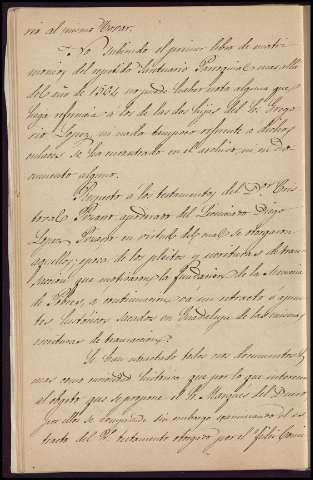 ria al mismo Tovar.
No subiendo el primer libro de matri-
monios del repetido Santuario Parroquial mas alla
del año de 1504 no puede haber nota alguna que
haga referencia á los de las dos hijas del Sr. Grego-
rio Lopez, ni nada tampoco referente á dichos
enlaces se ha encontrado en el archivo, ni en Do-
cumento alguno.
Respecto á los testamentos del Dor. Cris-
tobal Pizarro, apoderado del Licenciado Diego
Lopez Pizarro en virtud del cual se otorgaron
aquellos; y acerca de los pleitos y escrituras de tran-
saccion que motivaron la fundacion de la Memoria
de Pobres, á continuacion va un estracto ó apun-
tes históricos sacados en Guadalupe de las mismas
escrituras de transaccion.
Se han estractado tales documentos
mas como novedad histórica que por lo que interesan
al objeto que se propone el Sr. Marques del Duero
por ellos se comprueba sin embargo
tracto del testamento otorgado por el